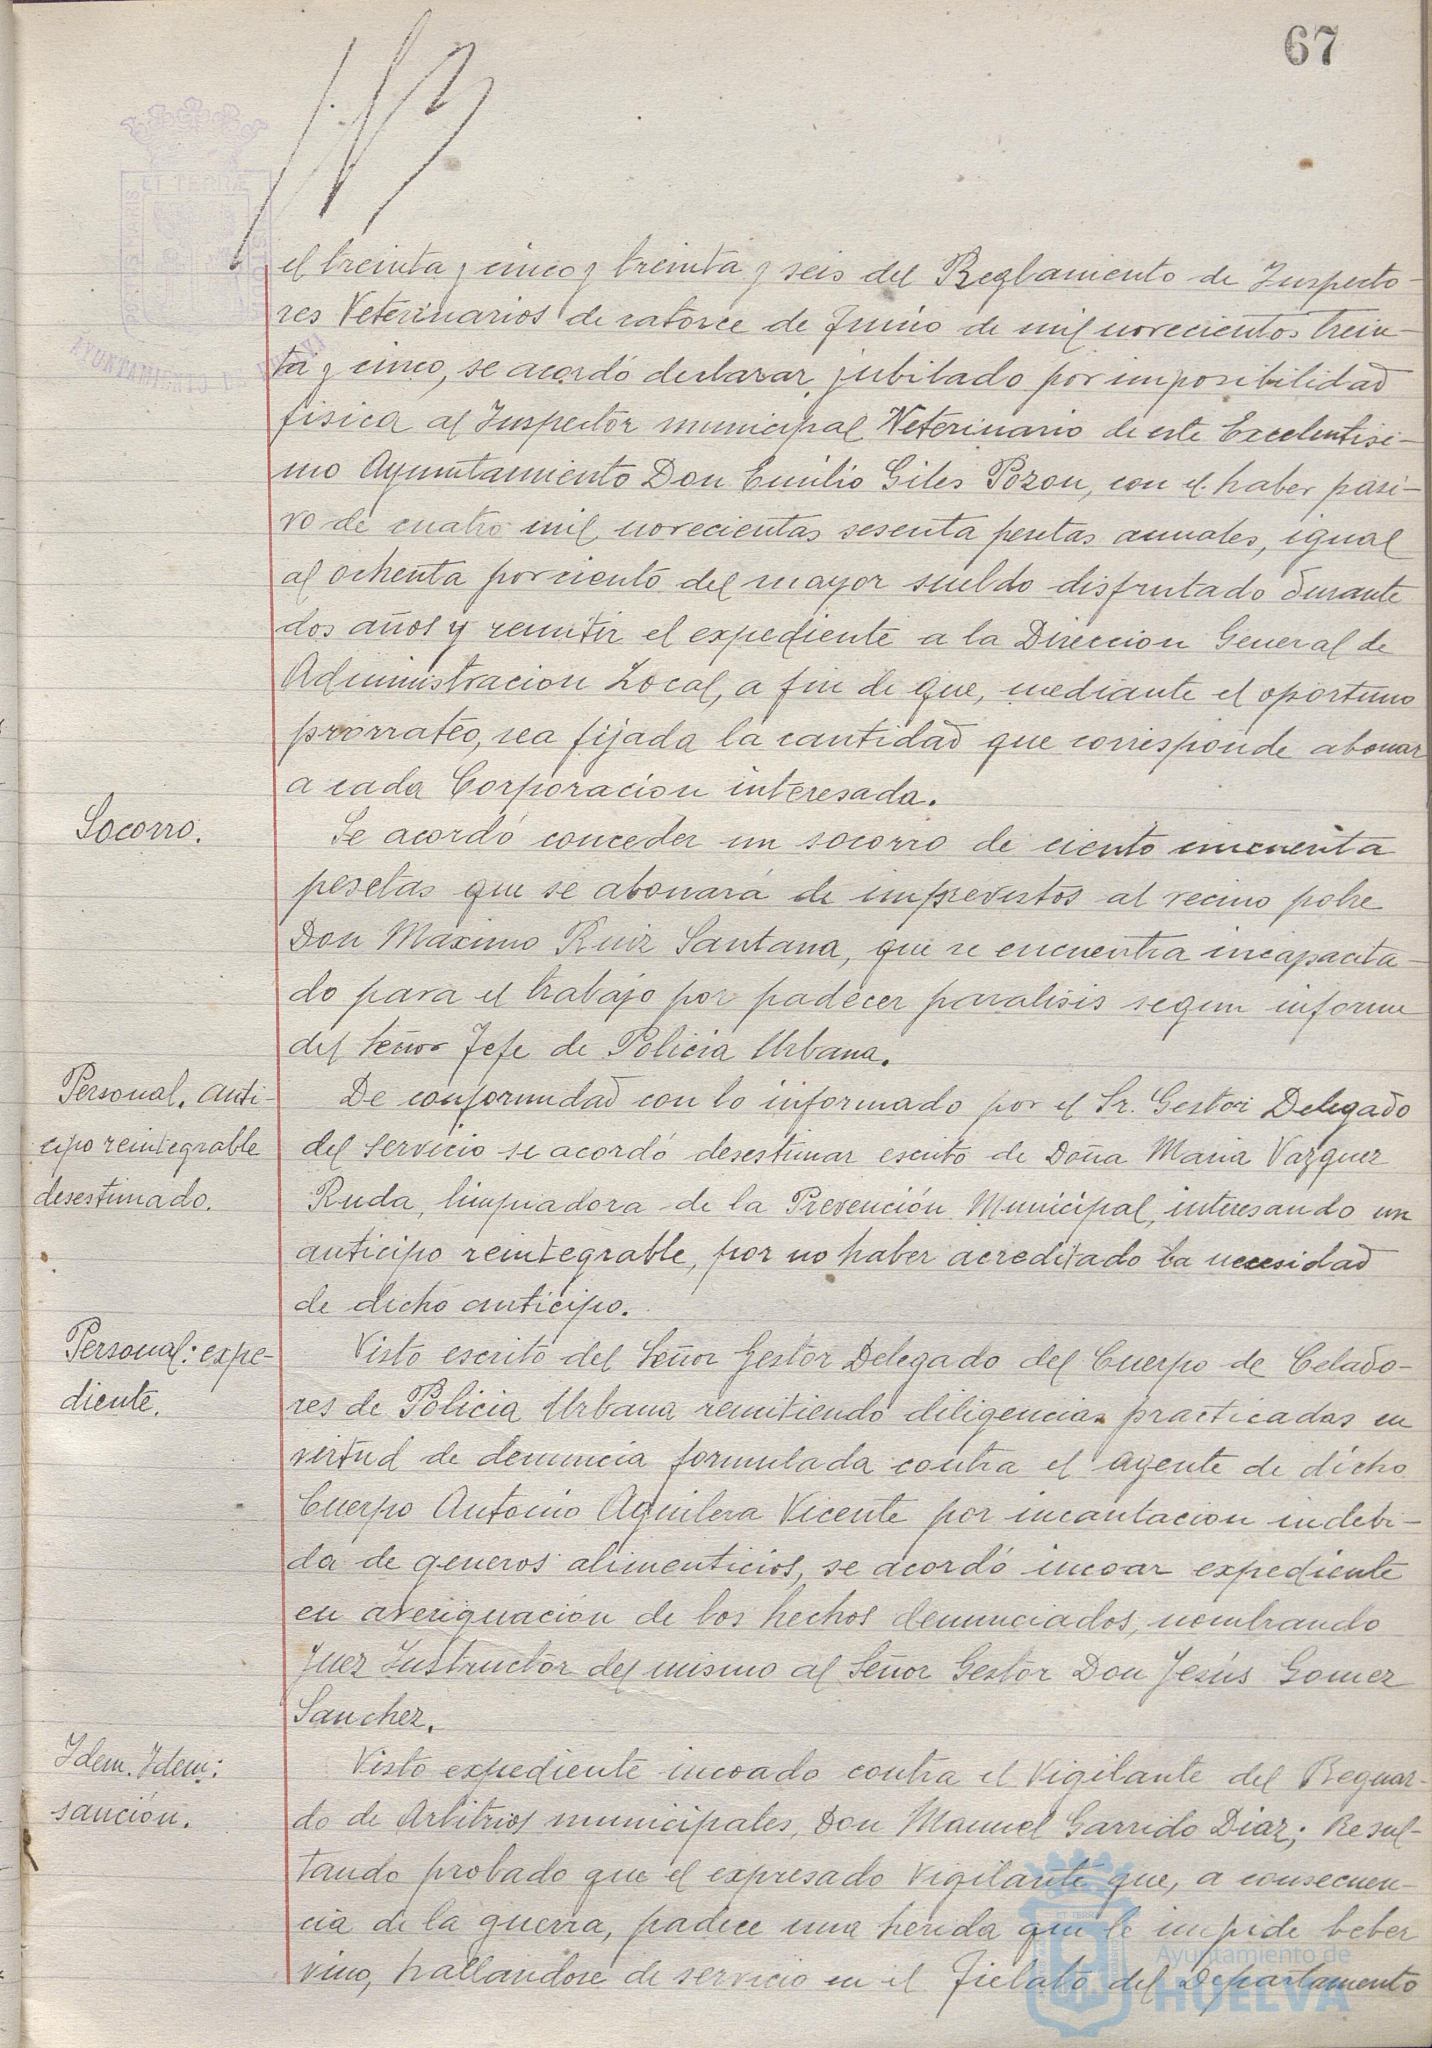 67
ET TERRÆ
AYUNTAMIENTO DE HUELVA
el treinta y cinco y treinta y seis del Reglamento de Inspecto-
res Veterinarios de catorce de Junio de mil novecientos trein-
ta y cinco, se acordó declarar jubilado por imposibilidad
fisica al Inspector municipal Veterinario de este Excelentisi-
mo Ayuntamiento Don Emilio Giles Pozon, con el haber pasi-
vo de cuatro mil novecientas sesenta pesetas anuales, igual
al ochenta por ciento del mayor sueldo disfrutado durante
dos años y remitir el expediente a la Direccion General de
Administracion Local, a fin de que, mediante el oportuno
prorrateo, sea fijada la cantidad que corresponde abonar
a cada Corporacion interesada.
Socorro.
Se acordó conceder un socorro de ciento cincuenta
pesetas que se abonará de imprevistos al vecino pobre
Don Maximo Ruiz Santana, que se encuentra incapacita-
do para el trabajo por padecer paralisis segun informe
del Señor Jefe de Policia Urbana.
Personal. Anti-
cipo reintegrable
desestimado.
De conformidad con lo informado por el Sr. Gestor Delegado
del servicio se acordó desestimar escrito de Doña Maria Vazquez
Ruda, limpiadora de la Prevención Municipal, interesando un
anticipo reintegrable, por no haber acreditado la necesidad
de dicho anticipo.
Personal: expe-
diente.
Visto escrito del Señor Gestor Delegado del Cuerpo de Celado-
res de Policia Urbana remitiendo diligencias practicadas en
virtud de denuncia formulada contra el agente de dicho
Cuerpo Antonio Aguilera Vicente por incautacion indebi-
da de generos alimenticios, se acordó incoar expediente
en averiguación de los hechos denunciados, nombrando
Juez Instructor del mismo al Señor Gestor Don Jesús Gomez
Sanchez.
Idem. Idem:
sanción.
Visto expediente incoado contra el Vigilante del Reguar-
do de Arbitrios municipales, Don Manuel Garrido Diaz; Resul-
tando probado que el expresado Vigilante que, a consecuen-
cia de la guerra, padece una herida que le impide beber
vino, hallandose de servicio en el Fielato del Departamento
Ayuntamiento de
HUELVA